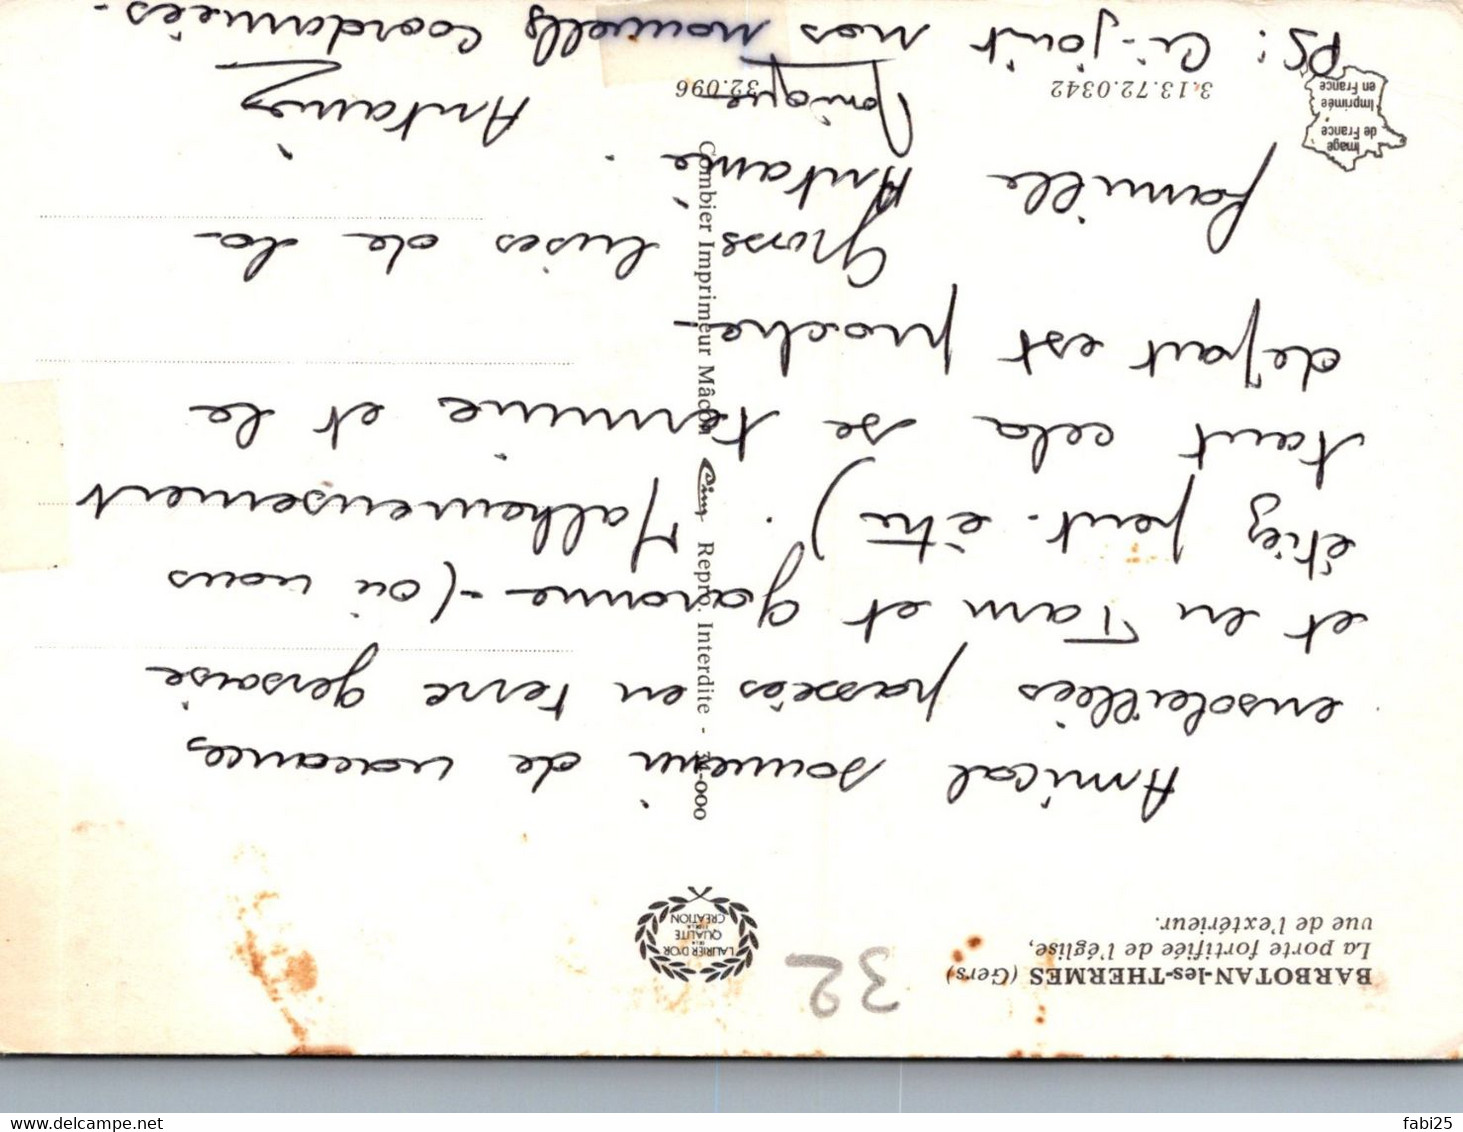 BARBOTAN-les-THERMES (Gers)
La porte fortifiée de l'église,
vue de l'extérieur.
32
LAURIER D'OR
DE LA
QUALITÉ
ET DE LA
CRÉATION
Amical souvenir de vacances
ensoleillées passées en terre gersoise
et en Tarn et Garonne - (où vous
étiez peut-être). Malheureusement
tout cela se termine et le
départ est proche.
Grosses bises de la
famille Antanie.
Monique
Antaniez
PS: Ci-joint nos nouvelles coordonnées.
Combier Imprimeur Mâcon Cim Repro. Interdite - 34-000
3.13.72.0342
32.096
Image
de France
Imprimée
en France
fabi25